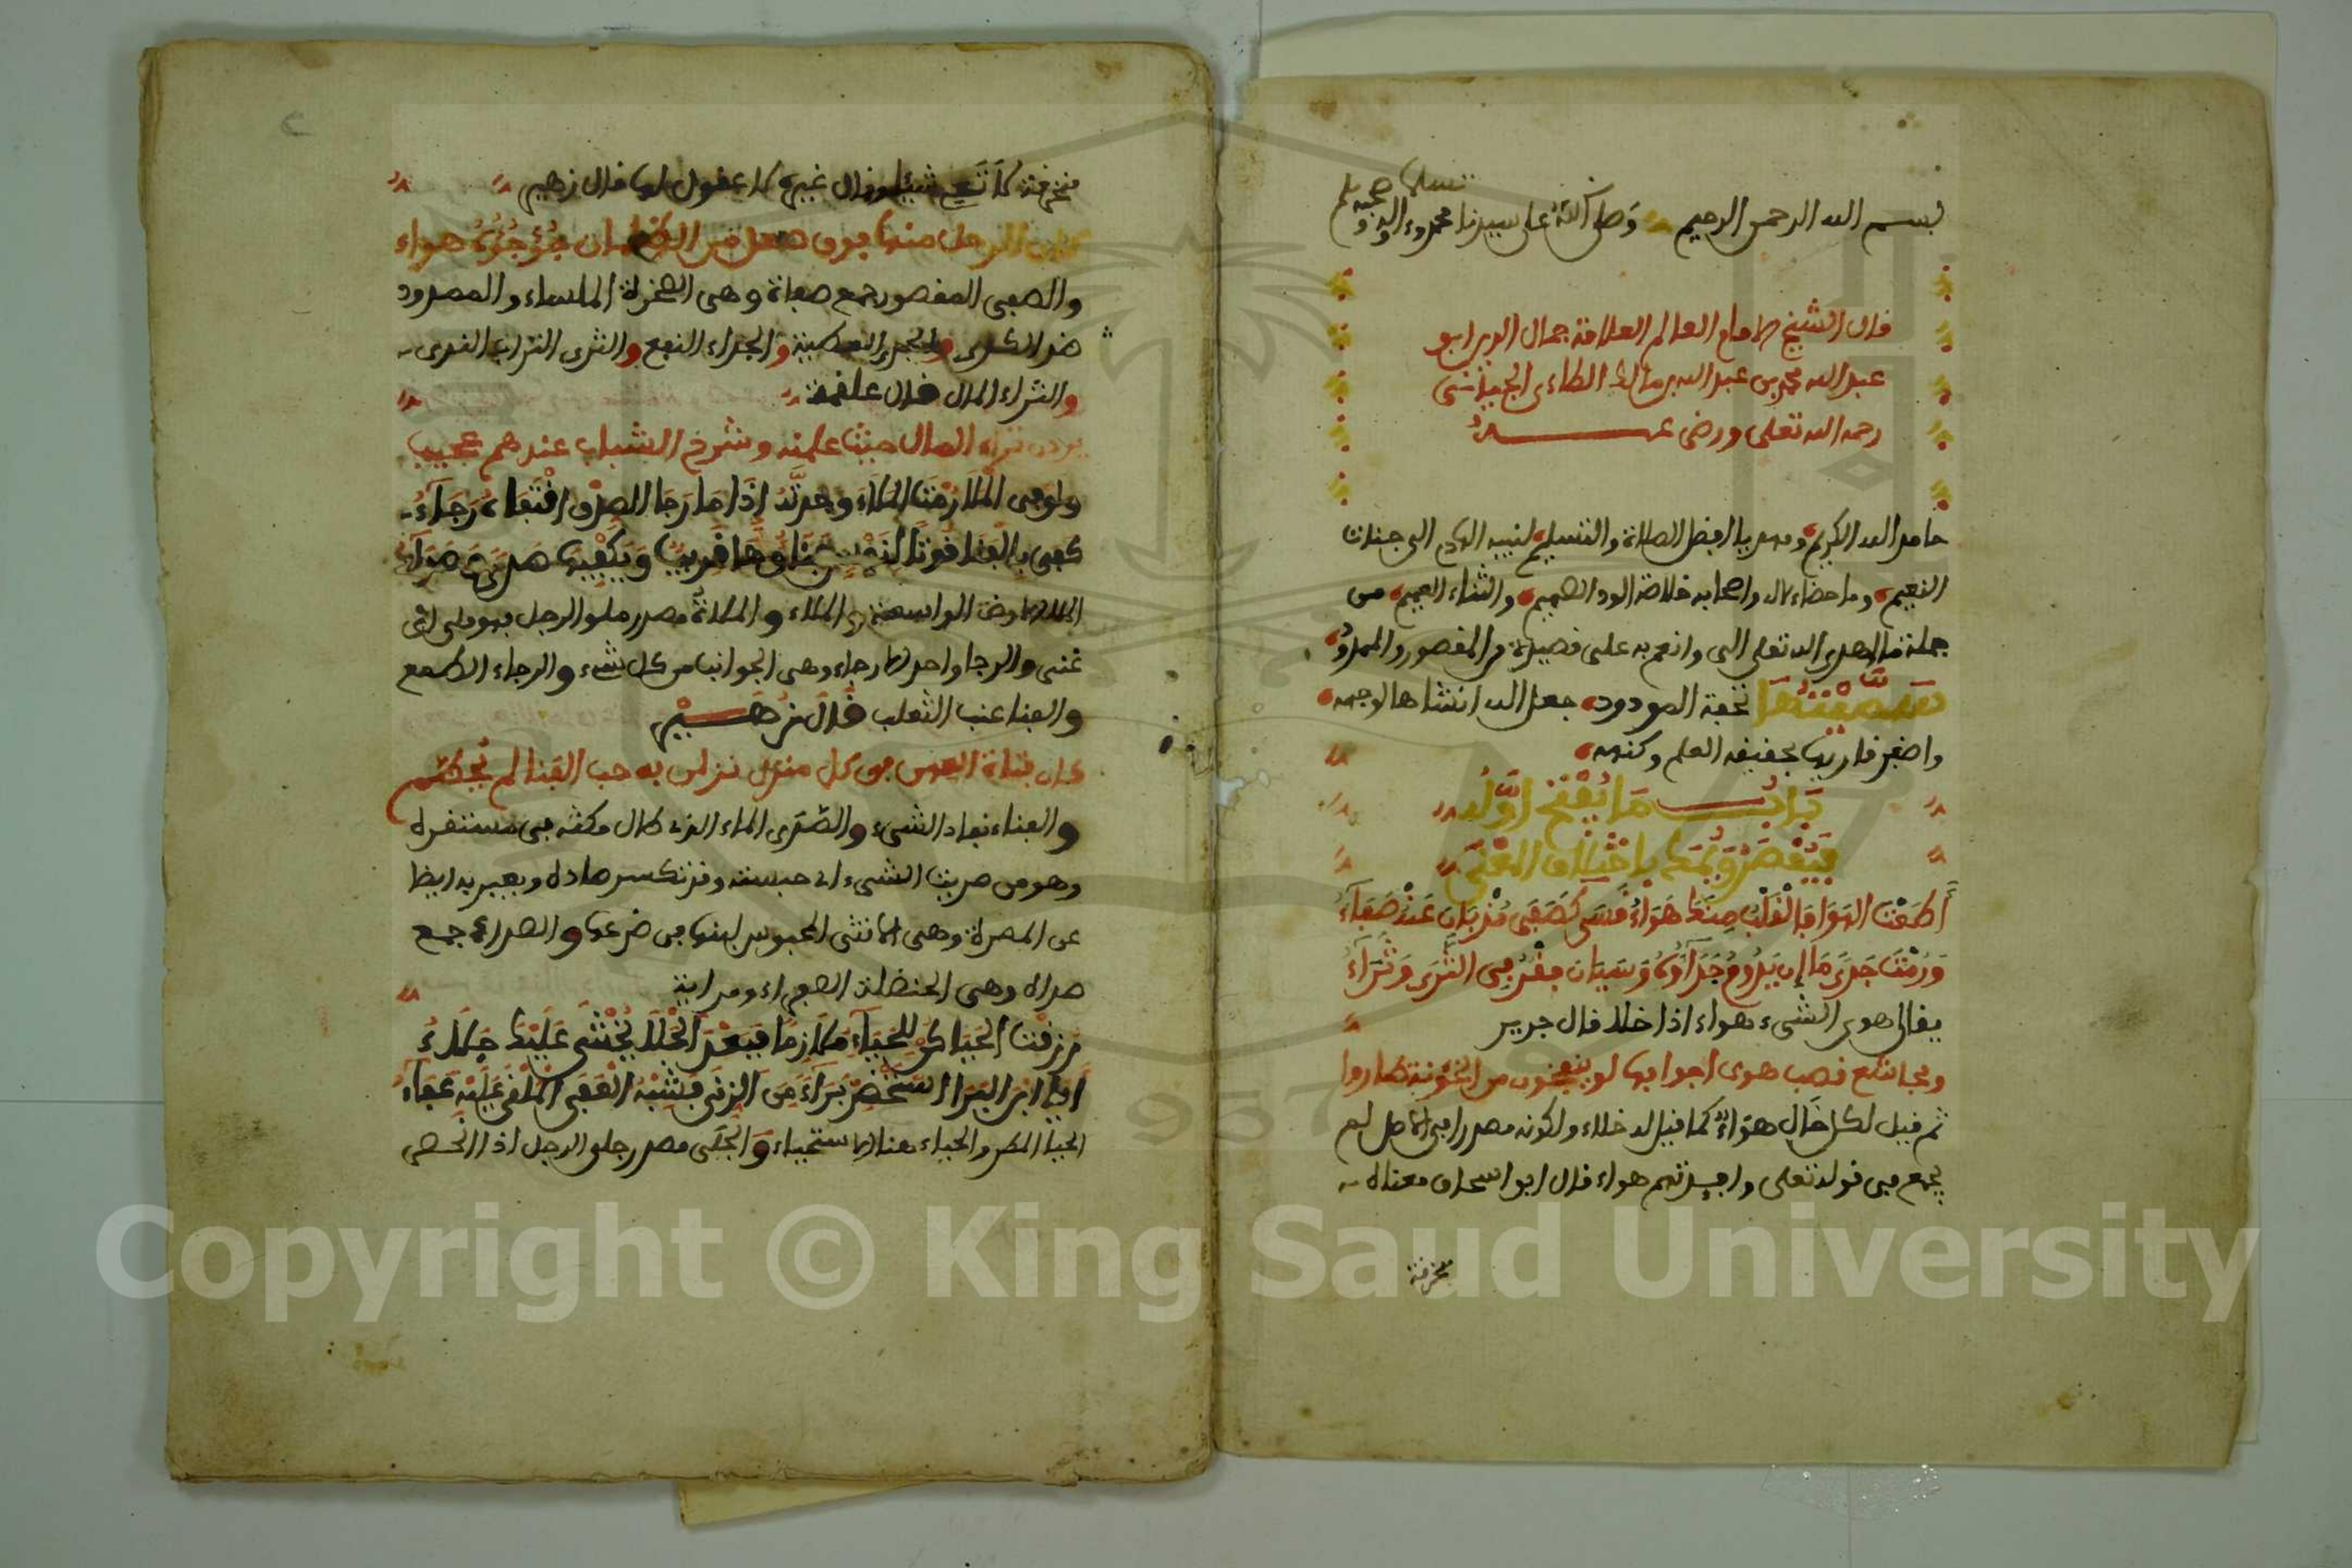 بسم الله الرحمن الرحيم وصلى الله على سيدنا محمد وءاله وصحبه وسلم تسليما
قال الشيخ الامام العالم العلامة جمال الدين ابو
عبد الله محمد بن عبد الله بن مالك الطاءي الجيانشي
رحمه الله تعلى ورضي عنه
حامد الله الكريم ومهديا افضل الصلاة والتسليم لنبيه الهادي الى جنات
النعيم وما حضاءلال واصحابه خلاصة الود الصميم والثناء العميم من
جملة ما اهدى الله تعلى الي وانعم به على قصيدة في المقصور والممدود
سميتها تحفة المودود جعل الله انشاها لوجهه
واضفر قاريها بحقيقة العلم وكنهه
باب ما يفتح اوله
فيقصر ويمد باختلاف المعنى
أطعت الهوى فالقلب منك هواء قسى كصفى مذ بان عنه صفاء
ورمت جدى ما إن يدوم جداؤه وسيان فقر في الثرى وثراء
يقال هوى الشيء هواء اذا خلا قال جرير
ومجاشع قصب هوى اجوافها لو ينفخون من الخؤونة طاروا
ثم قيل لكل خال هواء كما قيل له خلاء ولكونه مصدرا في الاصل لم
يجمع في قوله تعلى وافيدتهم هواء قال ابو اسحاق معناه
منخرفة
منخرفة لا تعي شيئا وقال غيره لا عقول لها قال زهير
كان الرحل منها فوق صعل من الظلمان جؤجؤه هواء
والصفى المقصور جمع صفاة وهي الصخرة الملساء والممدود
ضد الكدر والجدى العطية والجداء النفع والثرى التراب الندي
والثراء المال قال علقمة
يردن ثراء المال حيث علمنه وشرخ الشباب عندهن عجيب
ولو في الملا رمت الملاء وجدته اذا ما رجا الصدق اقتفاه رجاء
كفى بالفنا قوتا لنفس فناؤها قريب ويكفيها صرى وصراء
الملا الارض الواسعة والملاء والملاة مصدر ملو الرجل فهو ملي اي
غني والرجا واحد الارجاء وهي الجوانب من كل شيء والرجاء الطمع
والفنا عنب الثعلب قال زهير
كان فتاة العهن في كل منزل نزلن به حب الفنا لم يحطم
والفناء نفاد الشيء والصرى الماء الذي طال مكثه في مستقره
وهو من صريت الشيء اي حبسته وقد تكسر صاده ويعبر به ايضا
عن المصراة وهي الانثى المحبوس لبنها في ضرعها والصراء جمع
صراة وهي الحنضلة الصفراء ومدابة
رزقت الحيا كن للحياء ملازما فبعد الجلا يخشى عليك جلاء
الحيا المطر والحياء هنا الاستحياء والجلى مصدر جلي الرجل اذا انحسر
Copyright © King Saud University
1957